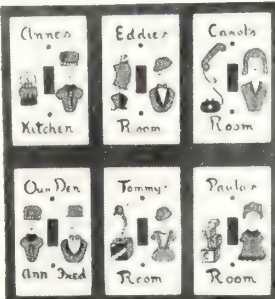 Anne's
Kitchen
Eddie's
Room
Carol's
Room
Our Den
Ann Fred
Tommy's
Room
Paula's
Room